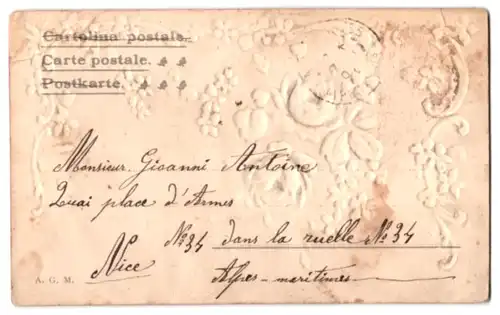 Cartolina postale.
Carte postale.
Postkarte.
Monsieur Gioanni Antoine
Quai place d'Armes
No 34 dans la ruelle No 34
Nice
Alpes-maritimes
A. G. M.